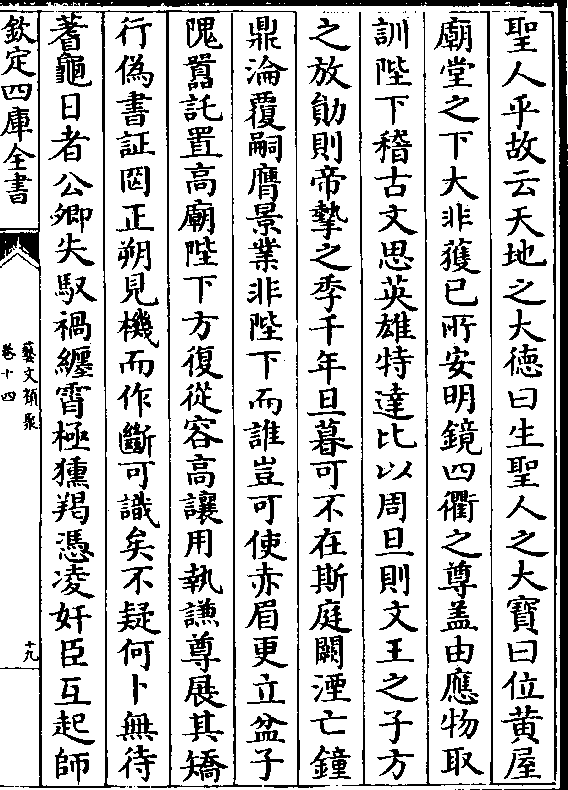 聖人乎故云天地之大徳曰生聖人之大寳曰位黄屋
廟堂之下大非獲已所安明鏡四衢之尊盖由應物取
訓陛下稽古文思英雄特達比以周旦則文王之子方
之放勛則帝摯之季千年旦暮可不在斯庭闕湮亡鐘
鼎淪覆嗣膺景業非陛下而誰豈可使赤眉更立盆子
隗囂託置高廟陛下方復從容高讓用執謙尊展其矯
行偽書証罔正朔見機而作斷可識矣不疑何卜無待
蓍龜日者公卿失馭禍纒霄極獯羯憑凌奸臣互起師
欽定四庫全書
藝文類聚
卷十四
十九